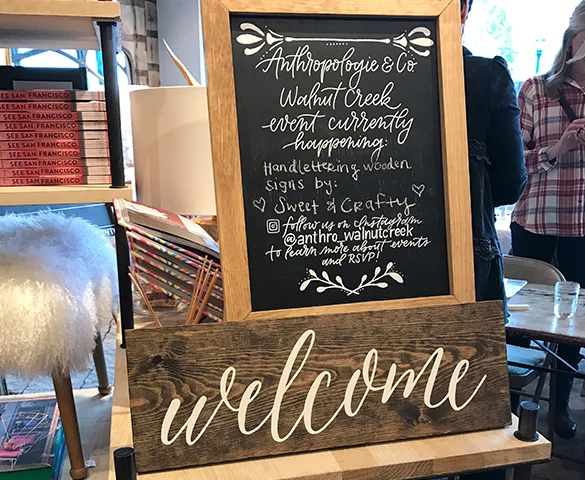 Anthropologie & Co.
Walnut Creek
event currently
happening:
Handlettering wooden
signs by:
♡ Sweet & Crafty ♡
follow us on Instagram
@anthro_walnutcreek
to learn more about events
and RSVP!
welcome
SEE SAN FRANCISCO
SEE SAN FRANCISCO
SEE SAN FRANCISCO
SEE SAN FRANCISCO
SEE SAN FRANCISCO
SEE SAN FRANCISCO
SEE SAN FRANCISCO
SEE SAN FRANCISCO
SEE SAN FRANCISCO